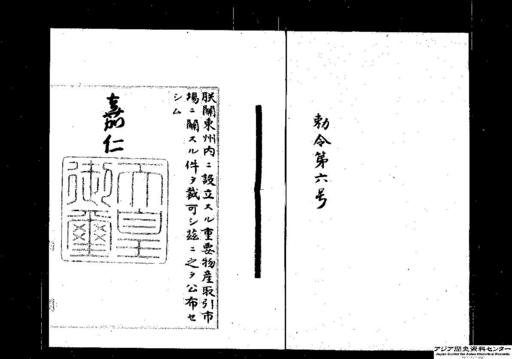 勅令第六号
朕關東州内ニ設立スル重要物産取引市
場ニ關スル件ヲ裁可シ茲ニ之ヲ公布セ
シム
嘉仁
天皇
御璽
アジア歴史資料センター
Japan Center for Asian Historical Records